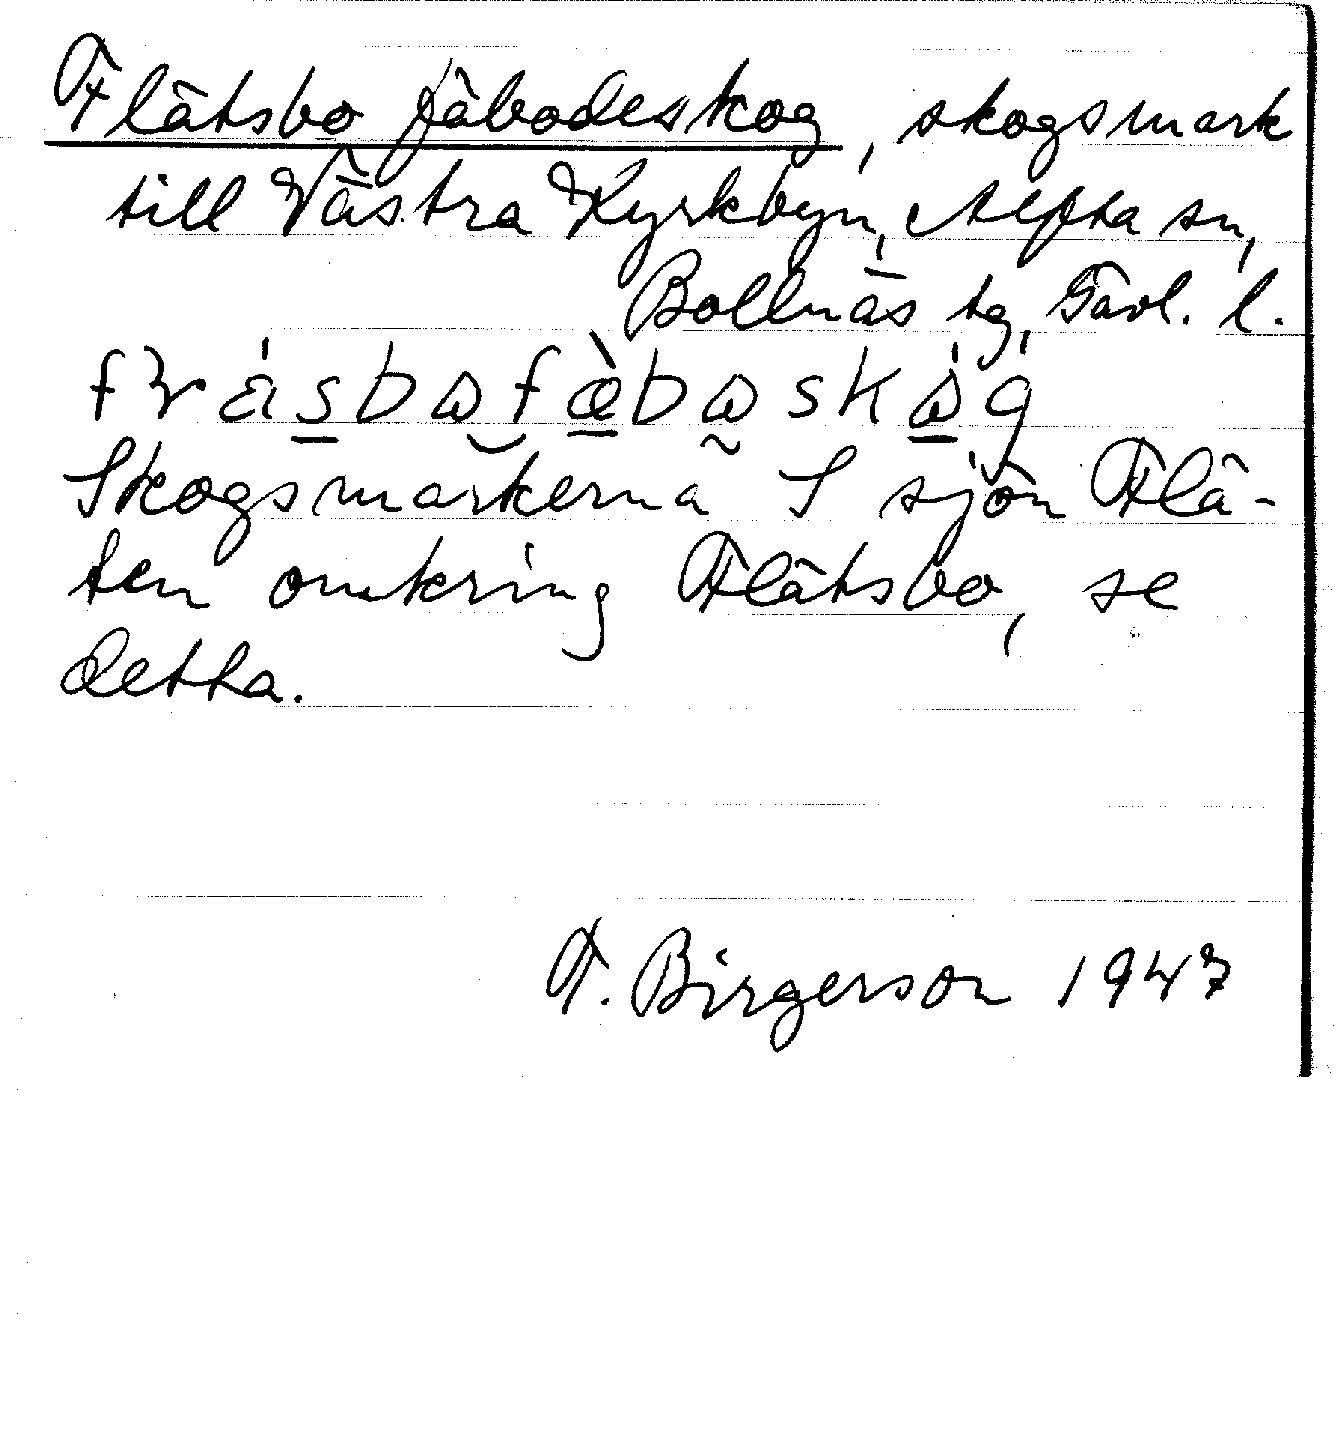 Flätsbo fäbodeskog, skogsmark
till Västra Kyrkbyn, Alfta sn,
Bollnäs tg, Gävl. l.
Skogsmarkerna S sjön Flä-
ten omkring Flätsbo, se
detta.
F. Birgerson 1947